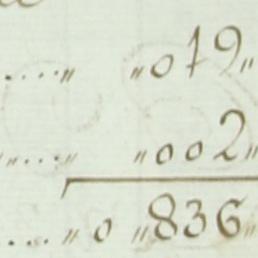 ....„ „019„
„....„ „002„
....„ 0 „836„